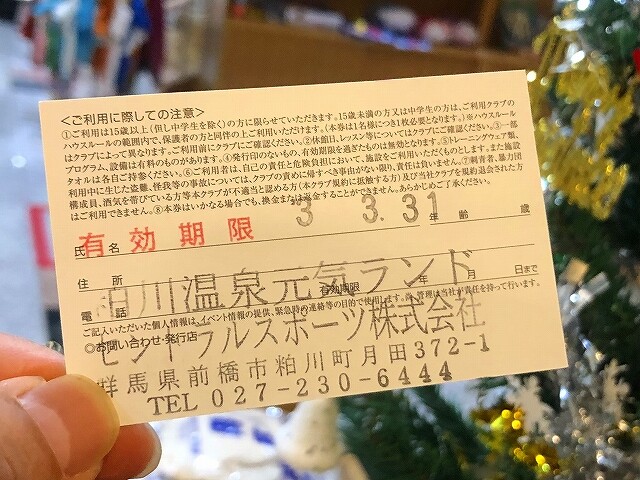 ＜ご利用に際しての注意＞
①ご利用は15歳以上（但し中学生を除く）の方に限らせていただきます。15歳未満の方又は中学生の方は、ご利用クラブの
ハウスルールの範囲内で、保護者の方と同伴の上ご利用いただけます。（本券は1名様につき1枚必要となります）※ハウスルール
はクラブによって異なります。ご利用前にクラブにご確認ください。②休館日、レッスン等についてはクラブにご確認ください。③一部
プログラム、設備は有料のものがあります。④発行印のないもの、有効期限を過ぎたものは無効となります。⑤トレーニングウェア類、
タオルは各自ご持参ください。⑥ご利用者は、自己の責任と危険負担において、施設をご利用いただくものとします。また施設
利用中に生じた盗難、怪我等の事故についてはクラブの責めに帰すべき事由がない限り、責任は負いません。⑦刺青者、暴力団
構成員、酒気を帯びている方等本クラブが不適当と認める方（本クラブ規約に抵触する方）及び当社クラブを規約退会された方
はご利用できません。⑧本券はいかなる場合でも、換金または返金することができません。あらかじめご了承ください。
氏 名 有効期限 3 3.31 年 齢 歳
住 所
粕川温泉元気ランド
電 話 有効期限 年 月 日まで
ご記入いただいた個人情報は、イベント情報の提供、緊急時の連絡等の目的で使用します。尚、管理は当社が責任を持って行います。
◎お問い合わせ・発行店
セントラルスポーツ株式会社
群馬県前橋市粕川町月田372-1
TEL 027-230-6444